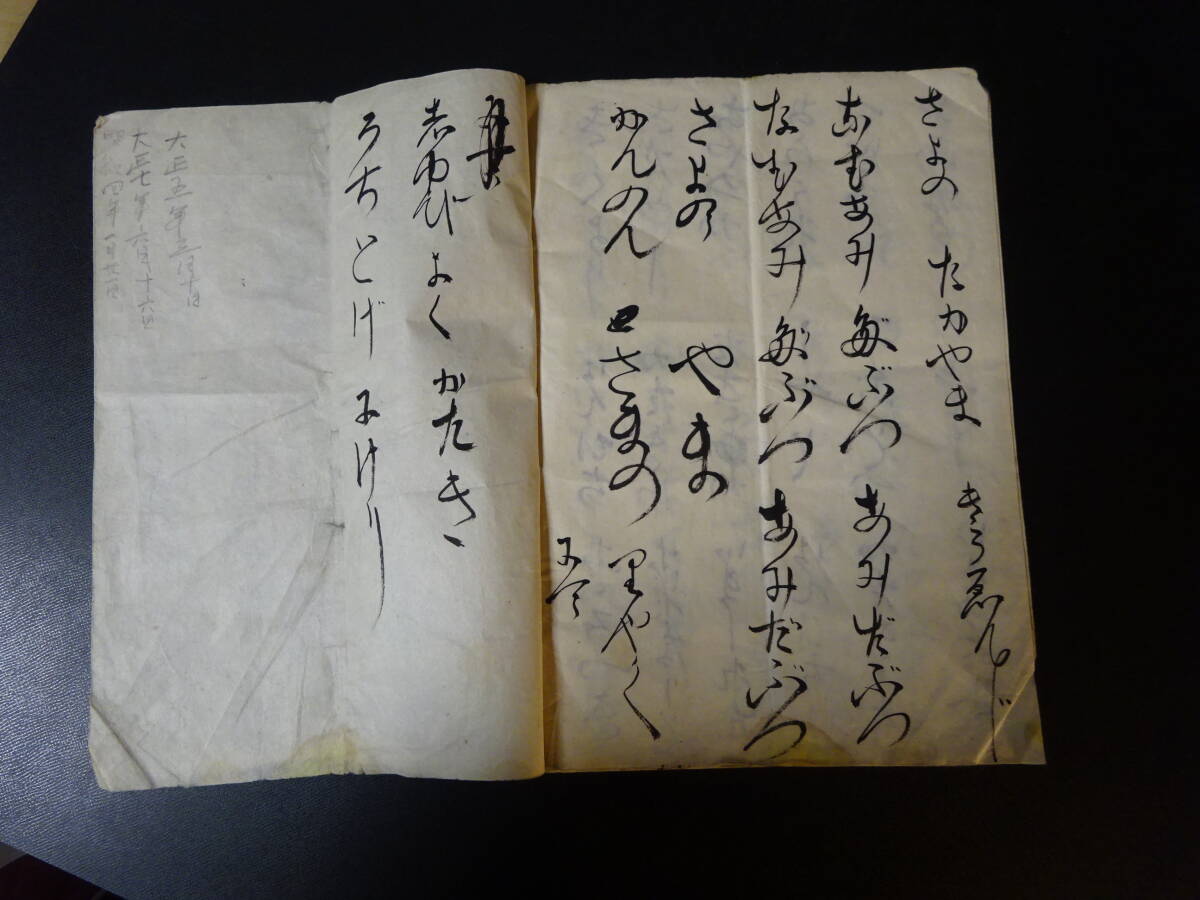 さよの なかやま きうゑんじ
なむあみ だぶつ あみだぶつ
なむあみ だぶつ あみだぶつ
さよの やまの
かんのん さまの りやく
にて
志ゆび よく かたき
うちとげ にけり
大正五年三月十日
大正七年六月十六日
昭和四年一月廿一日